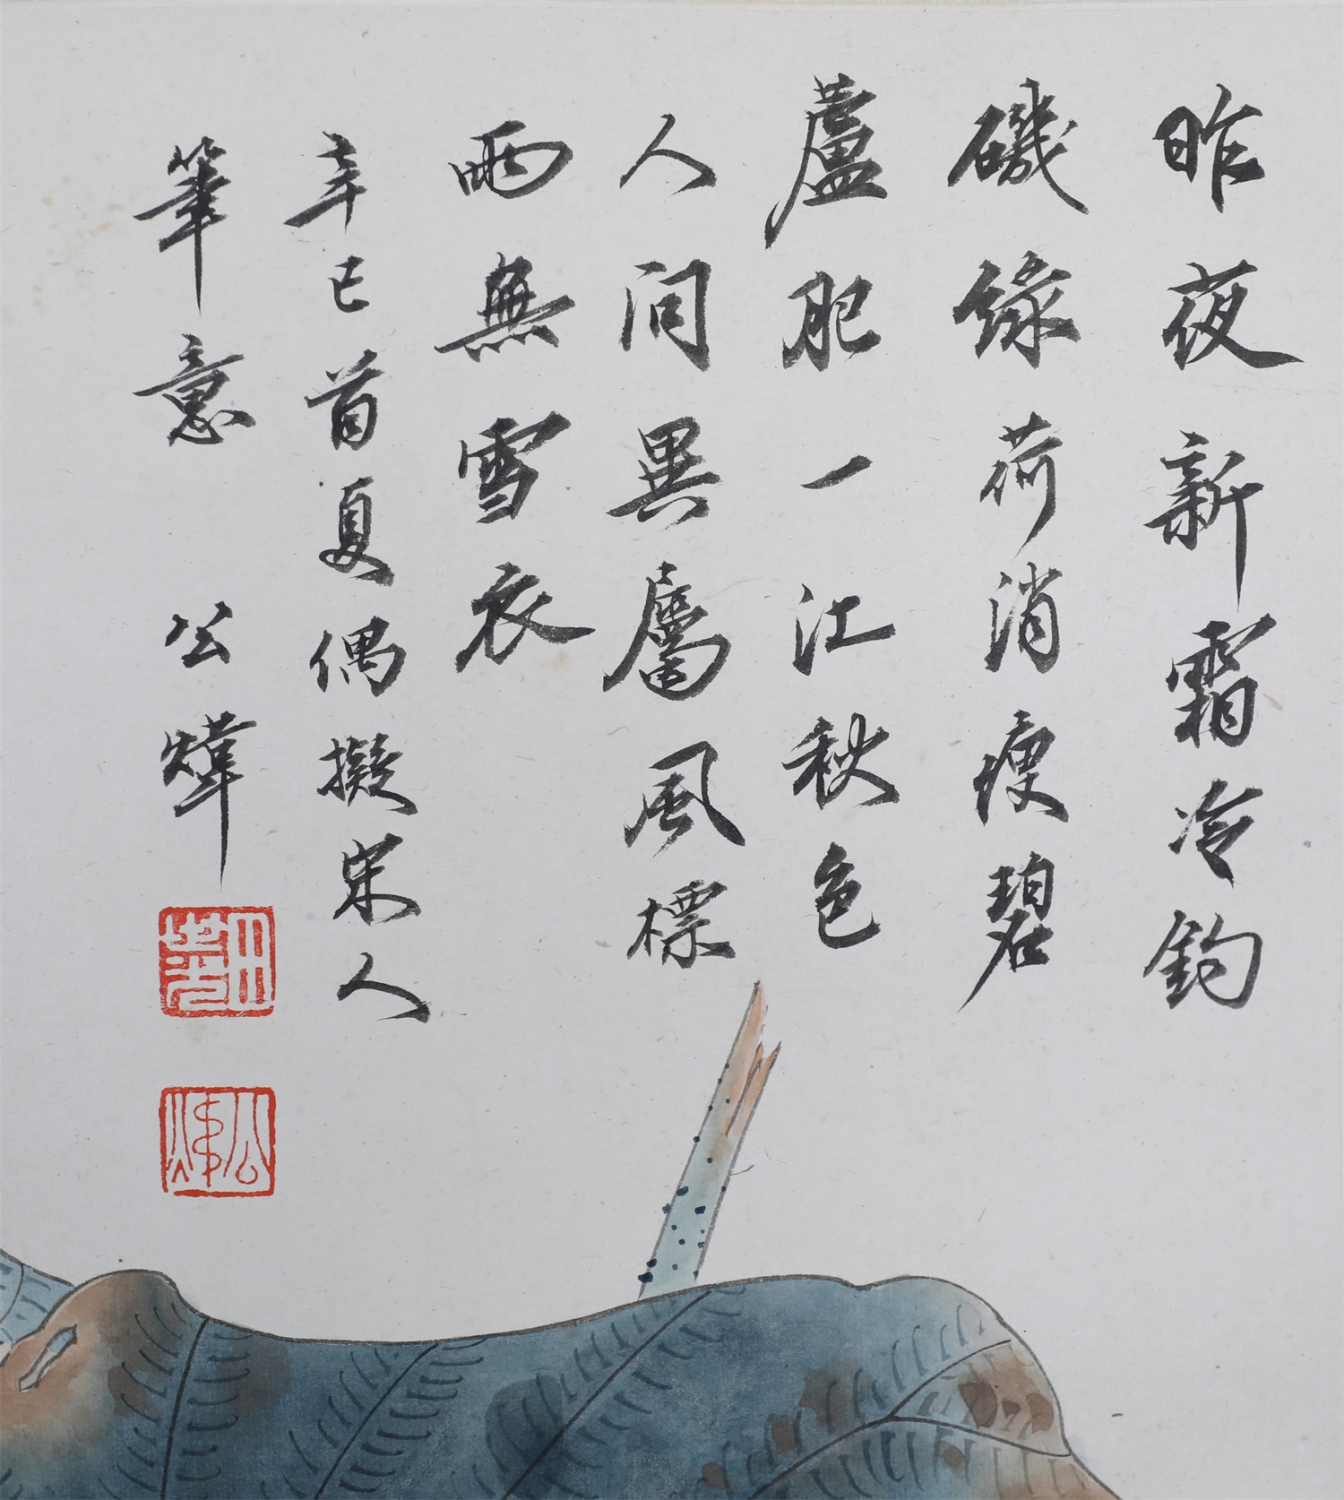 昨夜新霜冷釣
磯綠荷消瘦碧
蘆肥一江秋色
人間異屬風標
兩無雪衣
辛巳首夏偶擬宋人
筆意 公煒
公煒